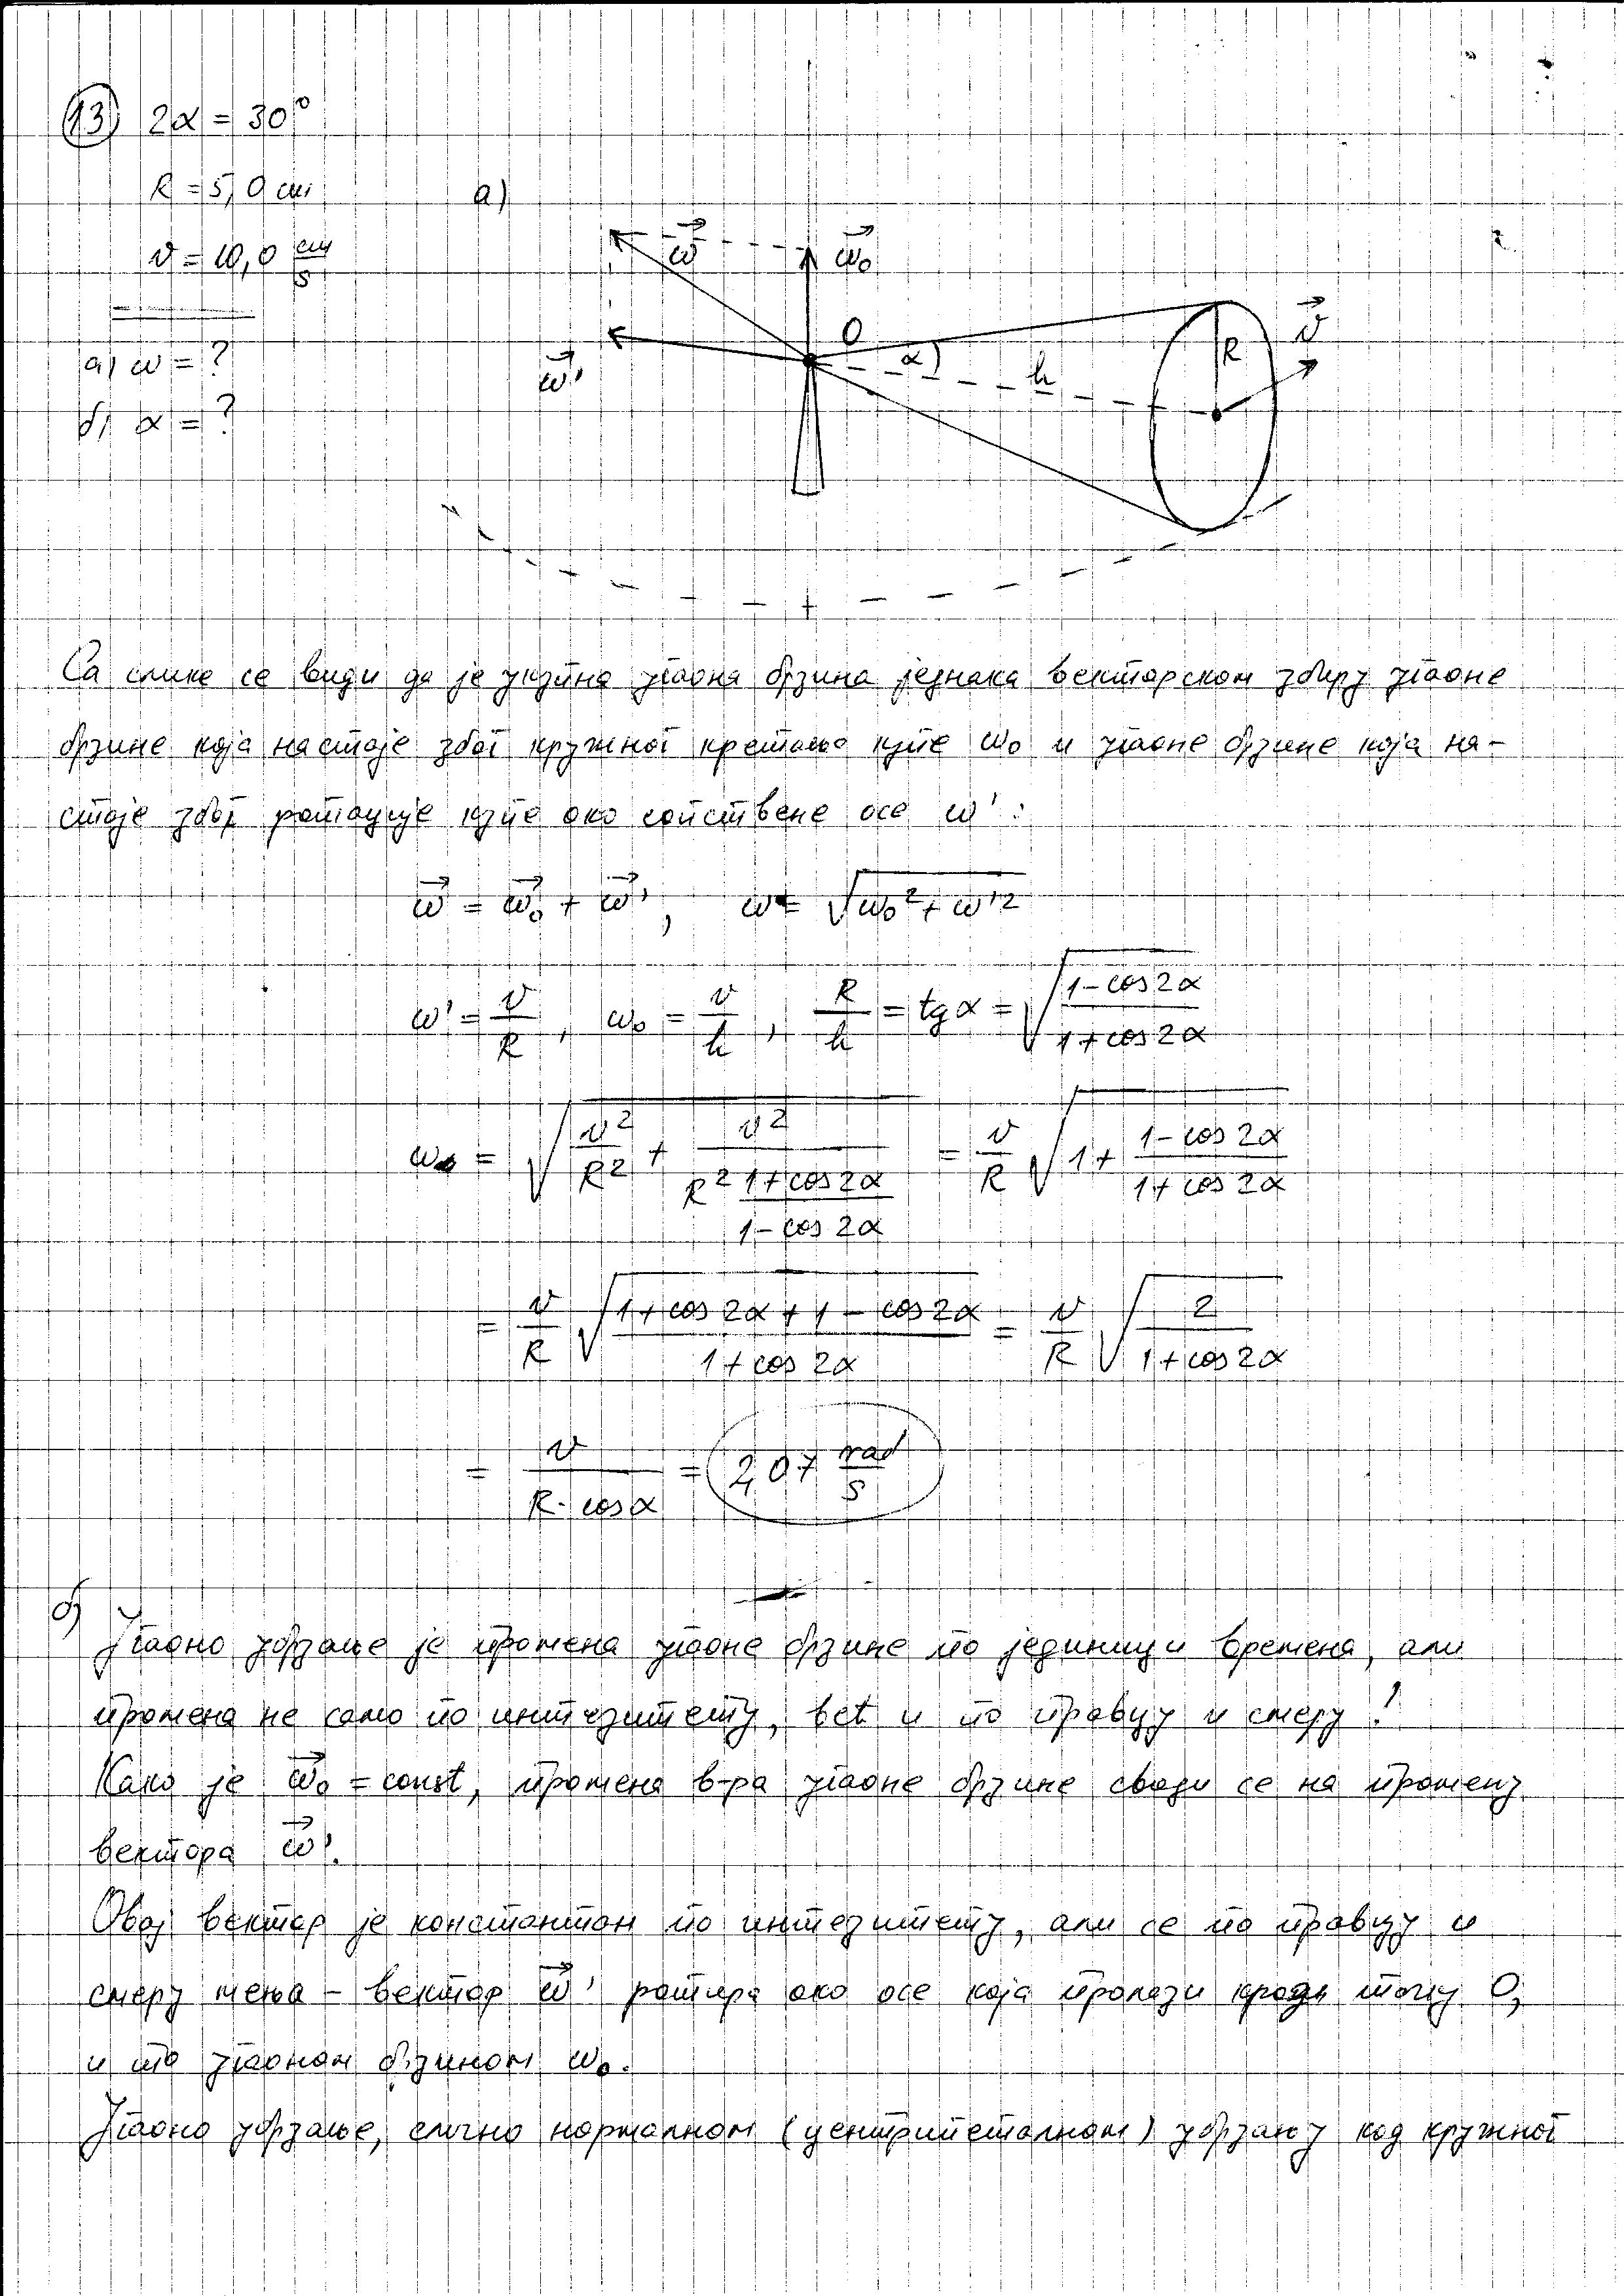 13) 2α = 30°
R = 5,0 cm
v = 10,0 cm/s
а) ω = ?
б) α = ?
а)
ω⃗ ω⃗₀
O α h R v⃗
ω⃗'
Са слике се види да је укупна угаона брзина једнака векторском збиру угаоне
брзине која настаје због кружног кретања купе ω₀ и угаоне брзине која на-
стаје због ротације купе око сопствене осе ω':
ω⃗ = ω⃗₀ + ω⃗', ω = √(ω₀² + ω'²)
ω' = v/R, ω₀ = v/h, R/h = tg α = √((1 - cos 2α)/(1 + cos 2α))
ω = √(v²/R² + v²/(R² (1 + cos 2α)/(1 - cos 2α))) = v/R √(1 + (1 - cos 2α)/(1 + cos 2α))
= v/R √((1 + cos 2α + 1 - cos 2α)/(1 + cos 2α)) = v/R √(2/(1 + cos 2α))
= v/(R · cos α) = 2,07 rad/s
б)
Угаоно убрзање је промена угаоне брзине по јединици времена, али
промена не само по интезитету, већ и по правцу и смеру!
Како је ω⃗₀ = const, промена в-ра угаоне брзине своди се на промену
вектора ω⃗'.
Овај вектор је константан по интезитету, али се по правцу и
смеру мења - вектор ω⃗' ротира око осе која пролази кроз тачку O,
и то угаоном брзином ω₀.
Угаоно убрзање, слично нормалном (центрипеталном) убрзању код кружног